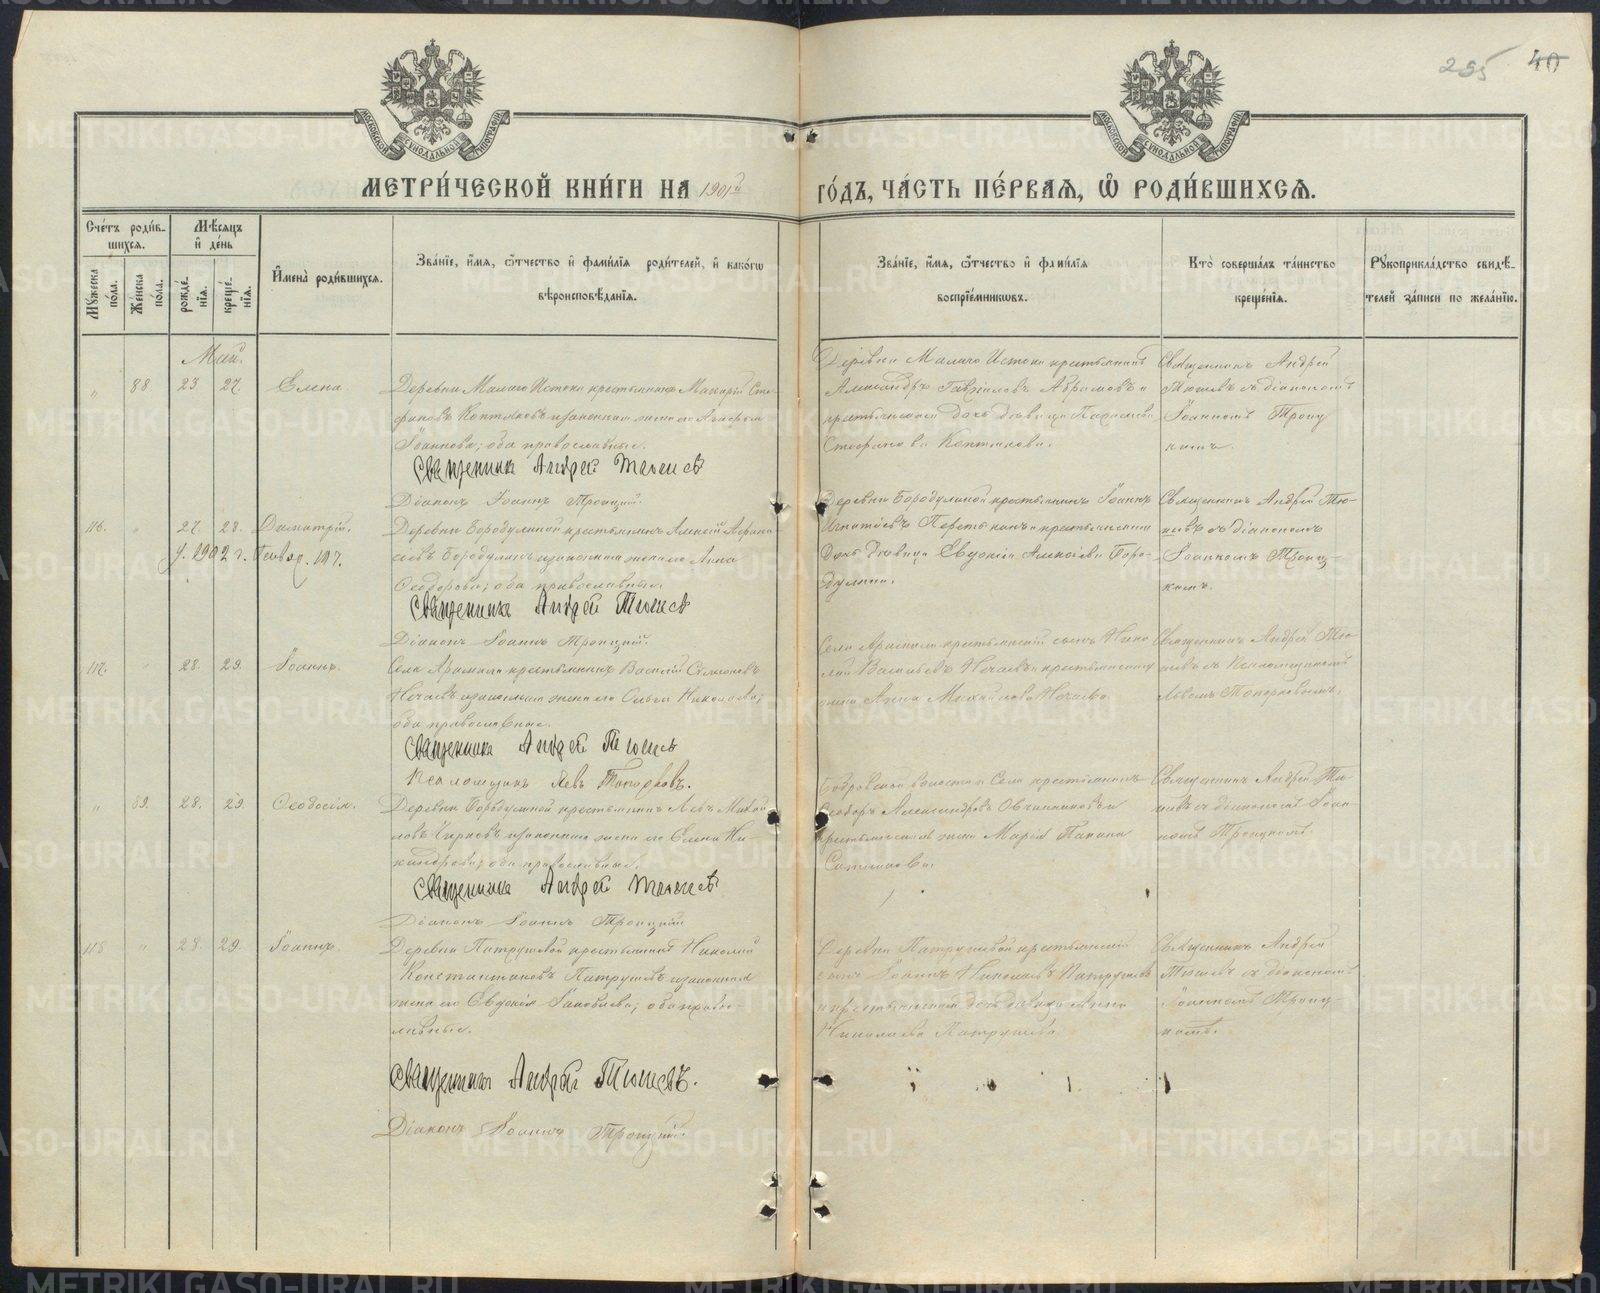 255 40
МОСКОВСКОЙ СѴНОДАЛЬНОЙ ТИПОГРАФІИ
МОСКОВСКОЙ СѴНОДАЛЬНОЙ ТИПОГРАФІИ
МЕТРИ́ЧЕСКОЙ КНИ́ГИ НА 1901й ГО́ДЪ, ЧА́СТЬ ПЕ́РВАѦ, Ѡ҆ РОДИ́ВШИХСѦ.
Сче́тъ роди́в-
шихсѧ.
Мꙋ́жеска по́ла.
Же́нска по́ла.
Мѣ́сѧцъ
и҆ де́нь
рожде́-
нїѧ.
креще́-
нїѧ.
И҆мена̀ роди́вшихсѧ.
Зва́нїе, и҆́мѧ, ѻ҆́тчество и҆ фами́лїѧ роди́телей, и҆ како́гѡ
вѣроисповѣ́данїѧ.
Зва́нїе, и҆́мѧ, ѻ҆́тчество и҆ фами́лїѧ
воспрїе́мникѡвъ.
Кто̀ соверша́лъ та́инство
креще́нїѧ.
Рꙋкоприкла́дство свидѣ́-
телей за́писи по жела́нїю.
Май.
" 88 23 27. Елена
Деревни Малаго Истока крестьянинъ Макарій Сте-
фановъ Коптяковъ и законная жена его
Іоаннова; оба православные.
Священникъ Андрей Тюшевъ
Діаконъ Іоаннъ Троицкій.
Деревни Малаго Истока крестьянинъ
Александръ Гавриловъ Абрамовъ и
крестьянская дочь девица Параскева
Стефанова Коптякова.
Священникъ Андрей
Тюшевъ съ діакономъ
Іоанномъ Троиц
кимъ
116. " 27. 28. Димитрій.
У. 1902 г. Январ. 107.
Деревни Бородулиной крестьянинъ Алексій Афана
сіевъ Бородулинъ и законная жена его Анна
Ѳеодорова; оба православные.
Священникъ Андрей Тюшевъ
Діаконъ Іоаннъ Троицкій.
Деревни Бородулиной крестьянинъ Іоаннъ
Игнатіевъ и крестьянская
дочь девица Евдокія Алексіева Боро-
дулина.
Священникъ Андрей Тю-
шевъ съ діакономъ
Іоанномъ Троиц
кимъ.
117. " 28. 29. Іоаннъ.
Села Арамили крестьянинъ Василій Симеоновъ
Нечаевъ и законная жена его Ольга Николаева;
оба православные.
Священникъ Андрей Тюшевъ
Псаломщикъ Левъ Топорковъ.
Села Арамили крестьянскій сынъ Нико
лай Васильевъ Нечаевъ и крестьянская
жена Анна Михайлова Нечаева
Священникъ Андрей Тю-
шевъ съ Псаломщикомъ
Львомъ Топорковымъ.
" 89. 28. 29. Ѳеодосія.
Деревни Бородулиной крестьянинъ Левъ Михай
ловъ и законная жена его Елена Ни-
кандрова; оба православные.
Священникъ Андрей Тюшевъ
Діаконъ Іоаннъ Троицкій
Бобровской волости и Села крестьянинъ
Ѳеодоръ Александровъ Овчинниковъ и
крестьянская жена Марія
Священникъ Андрей Тю
шевъ съ діакономъ Іоан
номъ Троицкомъ.
118 " 28. 29. Іоаннъ.
Деревни Патрушевой крестьянинъ Николай
Константиновъ Патрушевъ и законная
жена его Евдокія Іаковлева; оба право-
славные.
Священникъ Андрей Тюшевъ.
Діаконъ Іоаннъ Троицкій.
Деревни Патрушевой крестьянскій
сынъ Іоаннъ Николаевъ Патрушевъ
и крестьянская дочь девица Анна
Николаева Патрушева
Священникъ Андрей
Тюшевъ съ діакономъ
Іоанномъ Троиц-
комъ.
METRIKI.GASO-URAL.RU